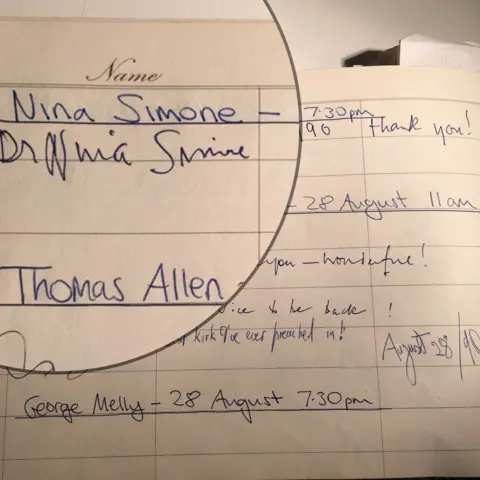 Name
Nina Simone —
7.30pm
Dr Nina Simone
90 Thank you!
Thomas Allen
- 28 August 11am
you — wonderful!
nice to be back !
Kirk I've ever preached in!!
August 28/90
George Melly - 28 August 7.30pm